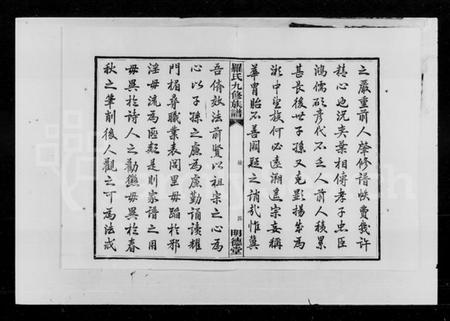 之嚴重前人屢修譜帙費幾許
精心也況奕葉相傳孝子忠臣
鴻儒碩彥代不乏人前人積累
甚長後世子孫又克顯揚茂為
湖中望族何必遠溯遥宗妄稱
華胄貽不善闕疑之誚哉惟冀
羅氏九修族譜
四
明德堂
吾儕效法前賢以祖宗之心為
心以子孫之慮為慮勤誦讀耀
門楣尋職業表閭里毋蹈於邪
淫毋流為匪類是則家譜之用
毋異於詩人之勸懲毋異於春
秋之筆削後人觀之可為法戒